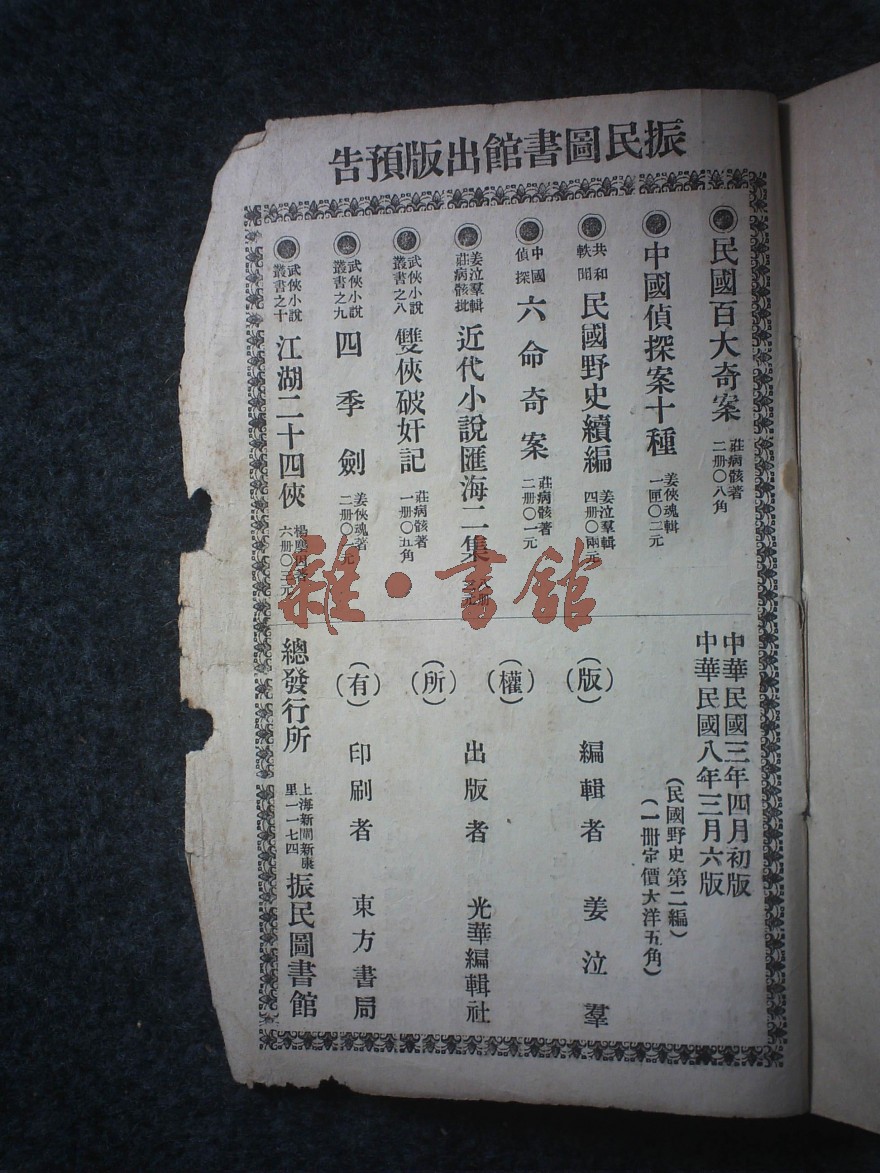 振民圖書館出版預告
民國百大奇案
莊病骸著
二冊〇八角
中國偵探案十種
姜俠魂輯
一匣〇二元
共和
軼聞
民國野史續編
姜泣羣輯
四冊〇兩元
中國
偵探
六命奇案
莊病骸著
二冊〇一元
姜泣羣輯
莊病骸批
近代小說匯海二集
八冊
武俠小說
叢書之八
雙俠破奸記
莊病骸著
一冊〇五角
武俠小說
叢書之九
四季劍
姜俠魂著
二冊〇一元
武俠小說
叢書之十
江湖二十四俠
楊塵因著
六冊〇三元
中華民國三年四月初版
中華民國八年三月六版
(民國野史第二編)
(一冊定價大洋五角)
(版)
(權)
(所)
(有)
編輯者 姜泣羣
出版者 光華編輯社
印刷者 東方書局
總發行所
上海新閘新康
里一一七四
振民圖書館
雜·書館